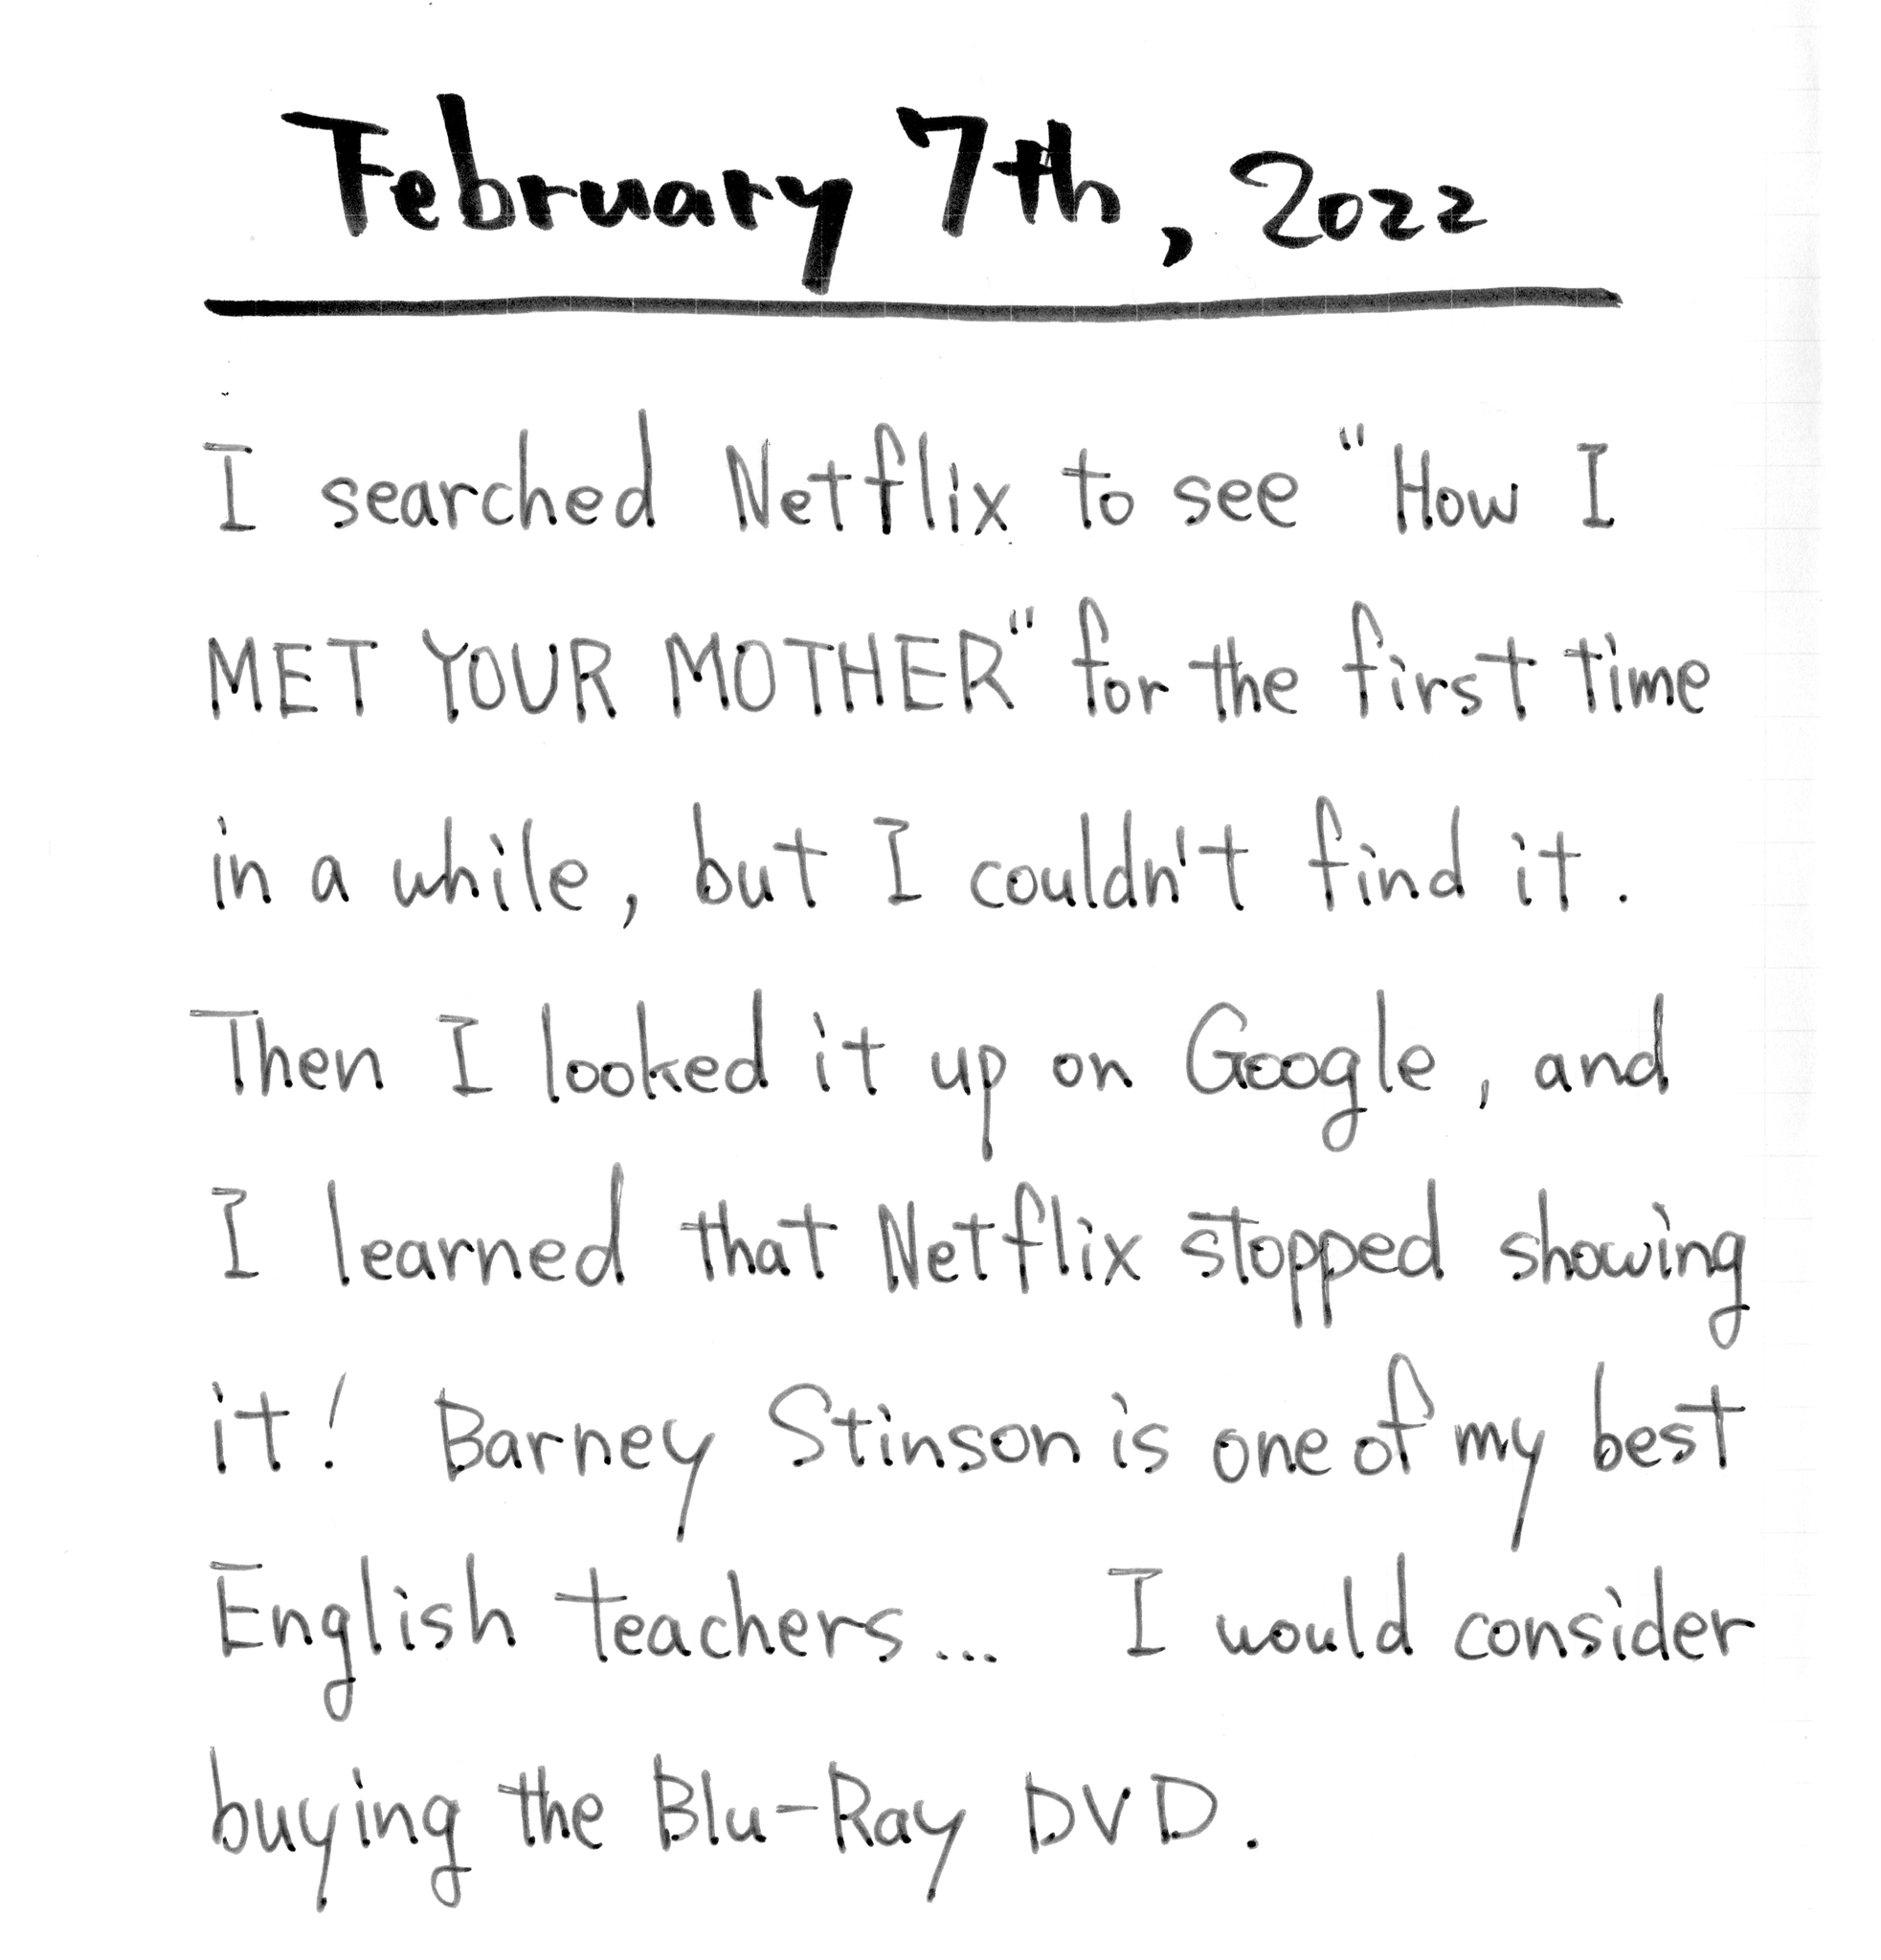 February 7th, 2022
I searched Netflix to see "How I
MET YOUR MOTHER" for the first time
in a while, but I couldn't find it.
Then I looked it up on Google, and
I learned that Netflix stopped showing
it! Barney Stinson is one of my best
English teachers... I would consider
buying the Blu-Ray DVD.